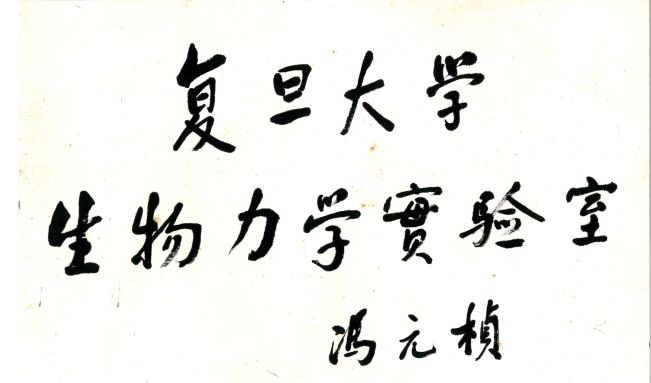 复旦大学
生物力学實验室
冯元桢